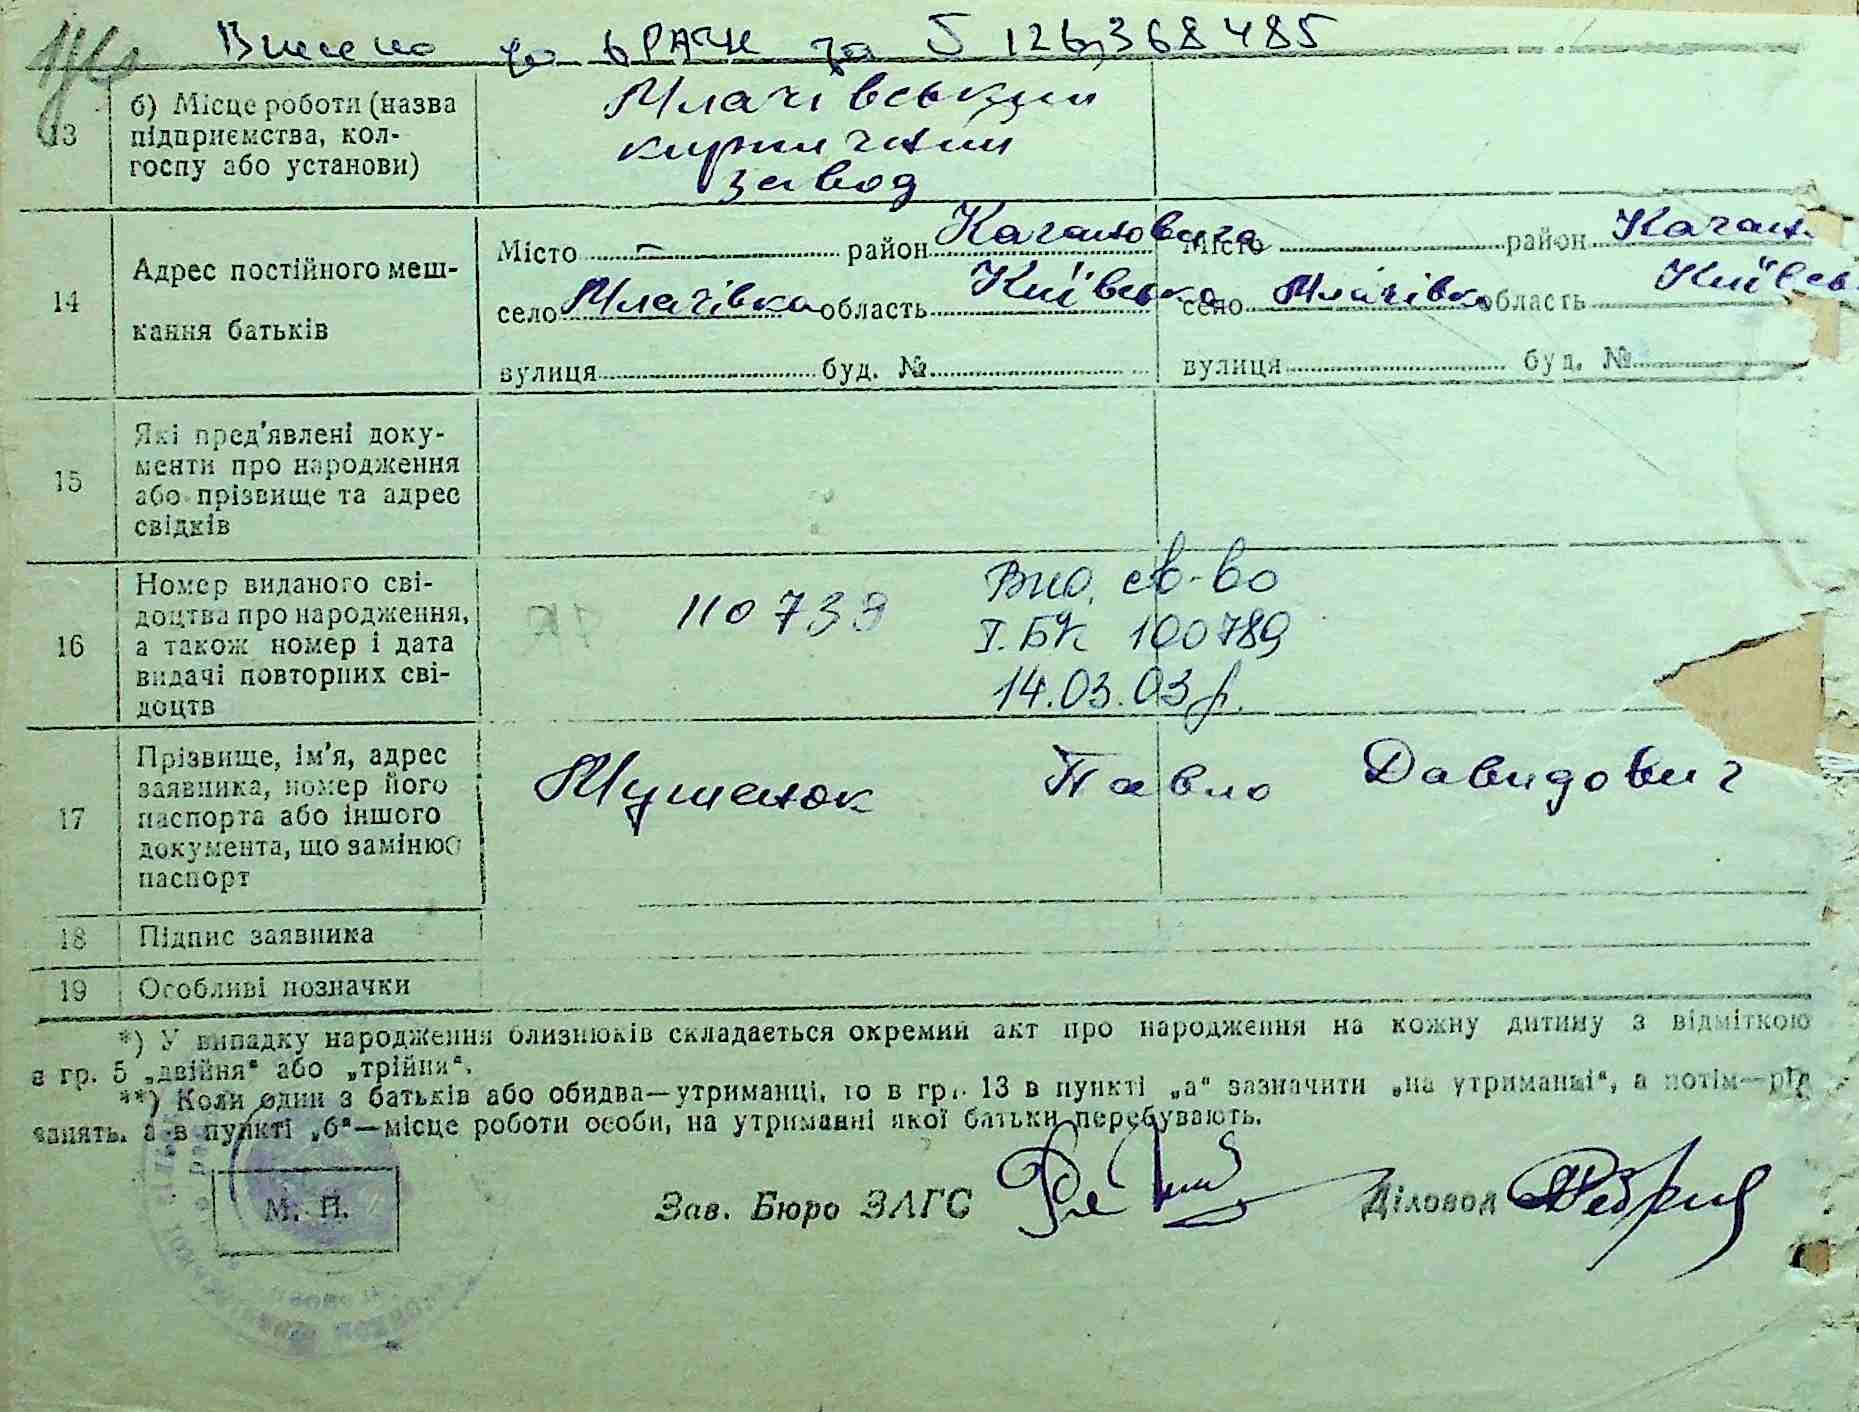 Внесено до ЄРАЧН за № 126368485
13
б) Місце роботи (назва
підприємства, кол-
госпу або установи)
Млачівський
кирпичний
завод
14
Адрес постійного меш-
кання батьків
Місто – район Кагановича
село Млачівка область Київська
вулиця буд. №
Місто район Каган.
село Млачівка область Київсь
вулиця буд. №
15
Які пред'явлені доку-
менти про народження
або прізвище та адрес
свідків
16
Номер виданого сві-
доцтва про народження,
а також номер і дата
видачі повторних сві-
доцтв
110739
Вид. св-во
I. БК 100789
14.03.03р.
17
Прізвище, ім'я, адрес
заявника, номер його
паспорта або іншого
документа, що замінює
паспорт
Мушенок Павло Давидович
18
Підпис заявника
19
Особливі позначки
*) У випадку народження близнюків складається окремий акт про народження на кожну дитину з відміткою
в гр. 5 „двійня“ або „трійня“.
**) Коли один з батьків або обидва—утриманці, то в гр. 13 в пункті „а“ зазначити „на утриманні“, а потім—рід
занять, а в пункті „б“—місце роботи особи, на утриманні якої батьки перебувають.
М. П.
Зав. Бюро ЗАГС
Діловод